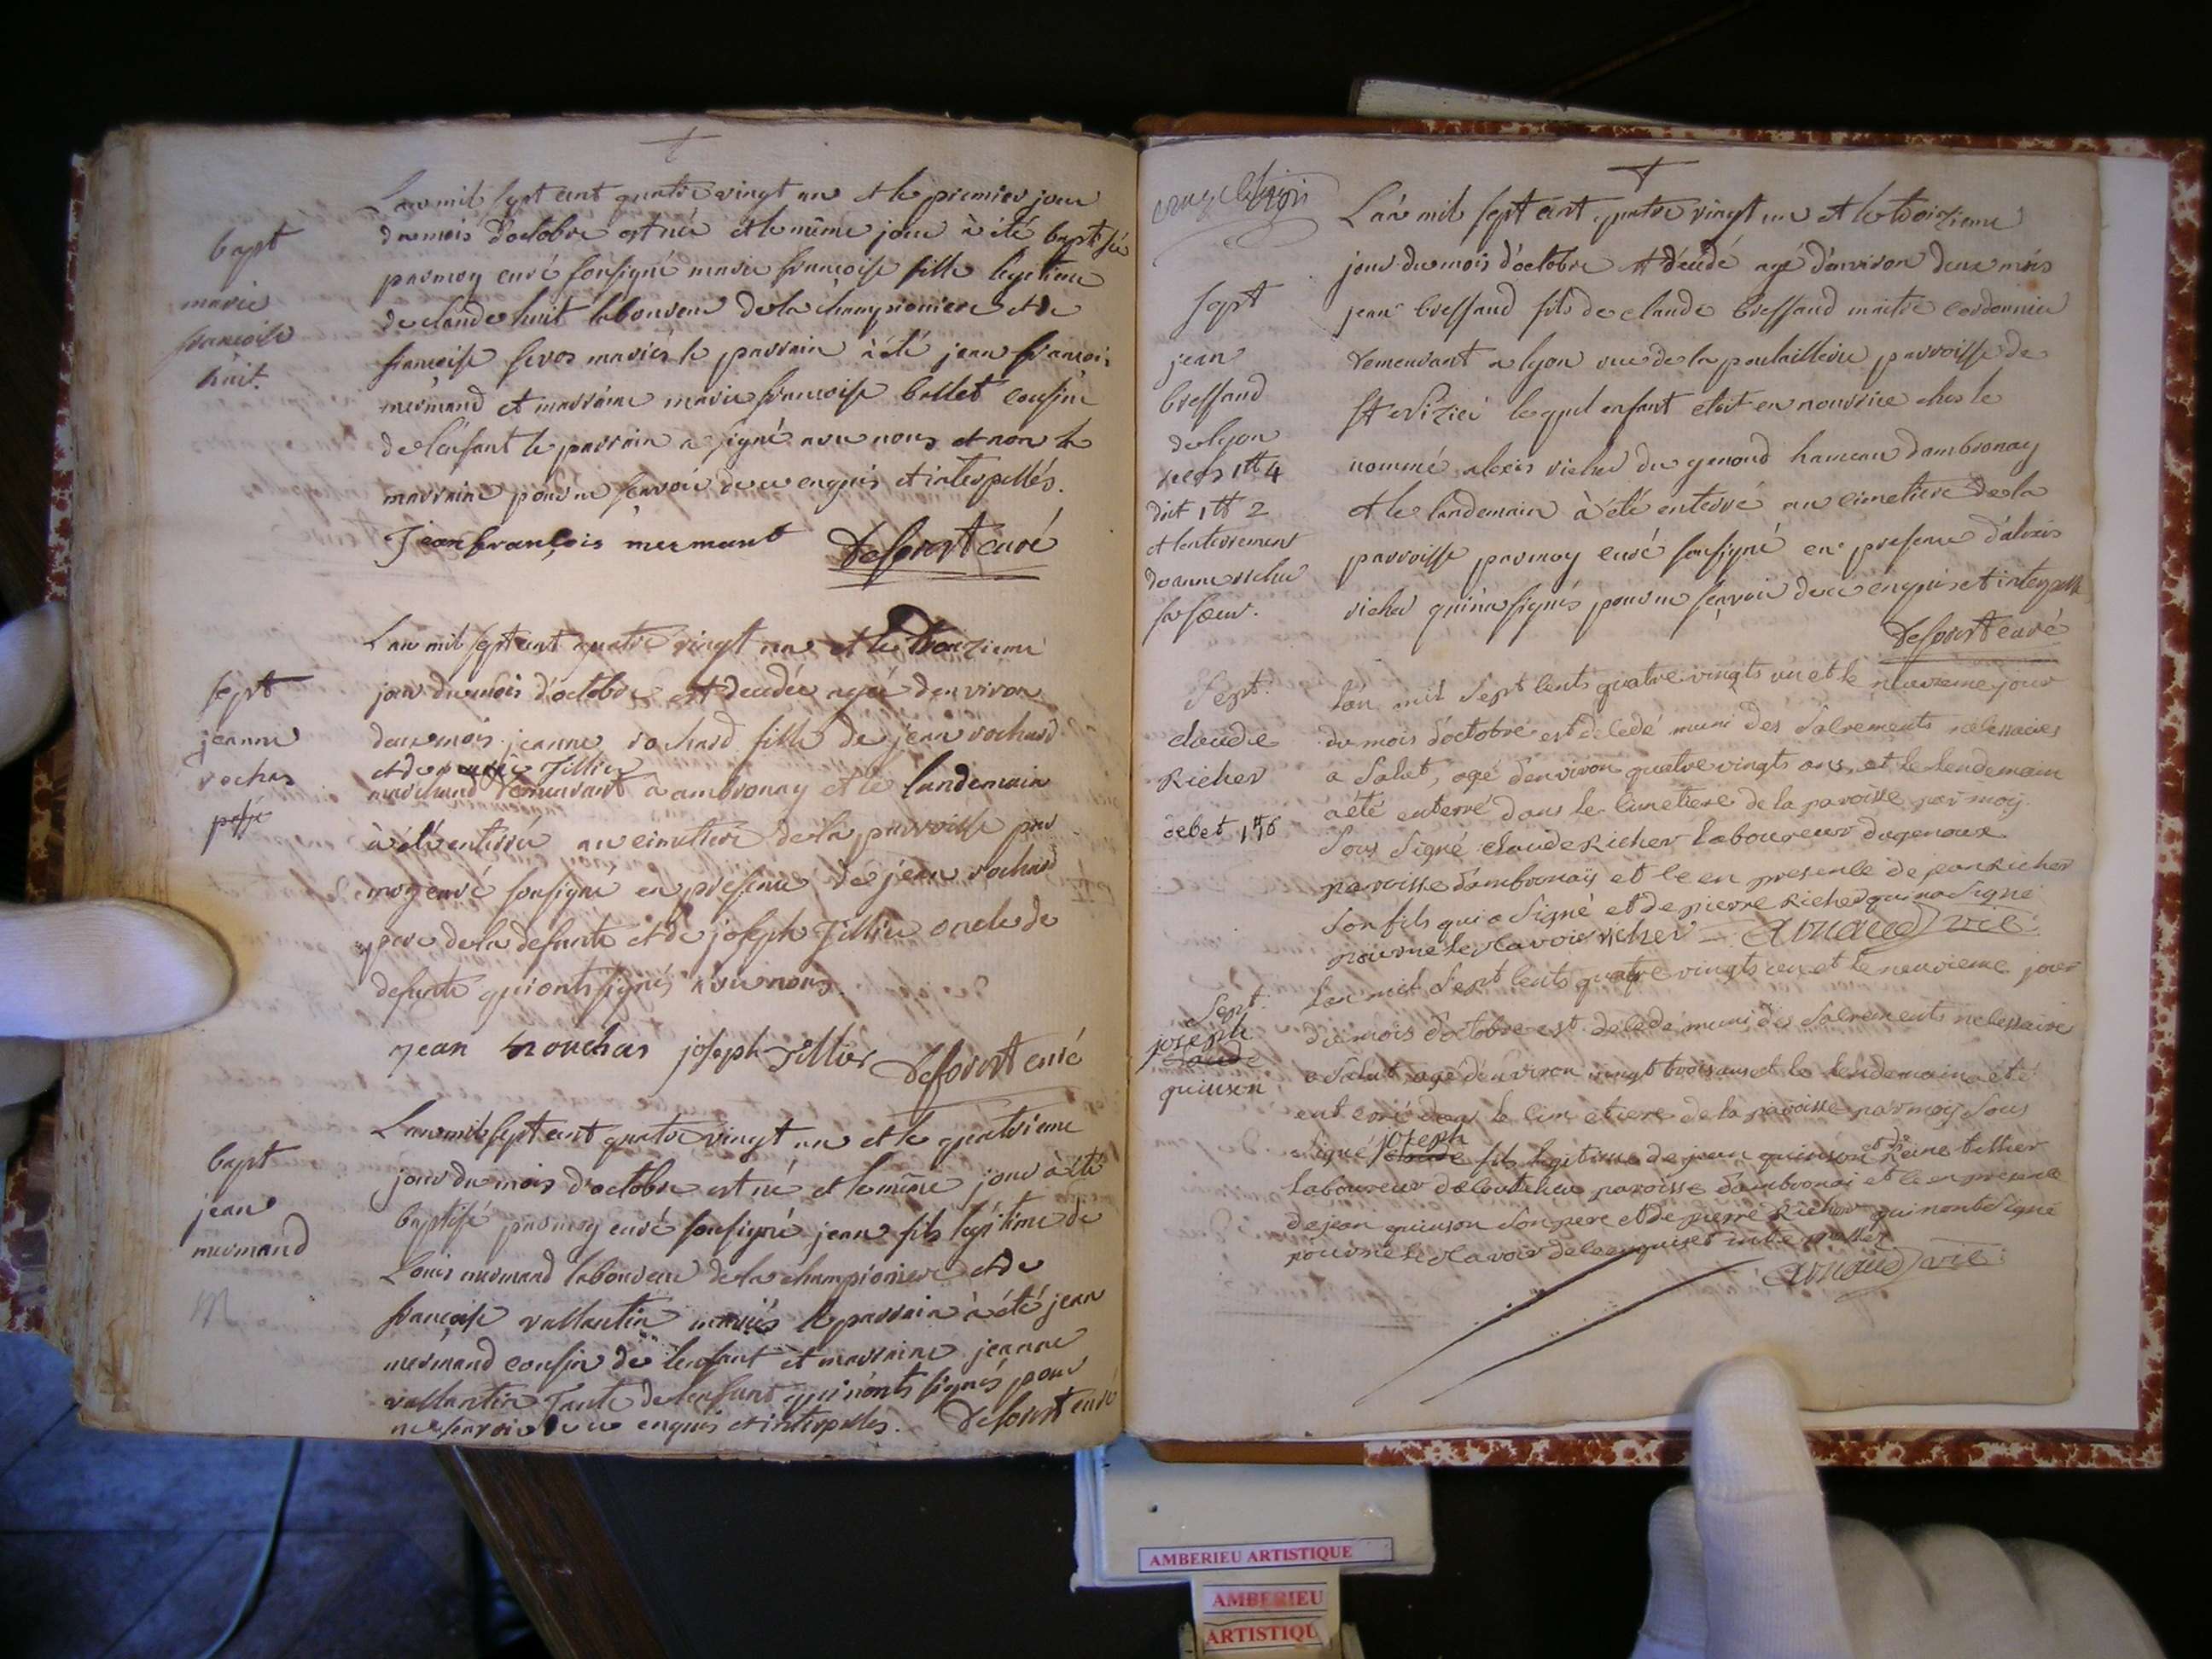 bapt
marie
francoise
huit.
Lan mil sept cent quatre vingt un et le premier jour
du mois d'octobre est née et le même jour à été baptisée
par moy curé sousigné marie francoise fille legitime
de claude huit laboureur de la championiere et de
francoise seros mariés le parrain à été jean francois
mermand et marraine marie francoise ballet cousine
de l'enfant le parrain a signé avec nous et non la
marraine pour ne scavoir de ce enquis et interpellés.
Jean francois mermant Deforest curé
sept
jeanne
rochas
Lan mil sept cent quatre vingt un et le troizieme
jour du mois d'octobre est decedée agée d'environ
deux mois jeanne rochard fille de jean rochard
et de marie Tillier
marchand demeurant à ambronay et le landemain
à été enterrée au cimetiere de la parroisse par
moy curé sousigné en presence de jean rochard
pere de la defunte et de joseph Tillier oncle de
defunte qui onts signés avec nous.
jean rouchas joseph Tillier Deforest curé
bapt
jean
mermand
Lan mil sept cent quatre vingt un et le quatrieme
jour du mois d'octobre est né et le même jour à été
baptisé par moy curé sousigné jean fils legitime de
Louis mermand laboureur de la championiere et de
francoise vallantin mariés le parrain à été jean
mermand cousin de lenfant et marraine jeanne
vallantin Tante de lenfant qui n'onts signés pour
ne scavoir de ce enquis et interpellés. Deforest curé
sept
jean
bressand
de lyon
doit 1tt 2
et lenterrement
de anne richer
sa soeur.
Lan mil sept cent quatre vingt un et le troizieme
jour du mois d'octobre est décédé agé d'environ deux mois
jean bressand fils de claude bressand maitre cordonnier
demeurant a lyon rue de la poulaillerie parroisse de
st Nizier le quel enfant etoit en nourrice ches le
nommé alexis richer du genoud hameau dambronay
et le landemain à été enterré au cimetiere de la
parroisse par moy curé sousigné en presence d'alexis
richer qui n'a signés pour ne scavoir de ce enquis et interpellé
Deforest curé
Sept.
claude
Richer
debet 1tt 6
L'an mil Sept cents quatre vingts un et le neuvieme jour
du mois d'octobre est décedé muni des Sacrements nécessaires
a Salut, agé d'environ quatre vingts ans, et le lendemain
a été enterré dans le cimetiere de la paroisse par moy
Sous Signé claude Richer laboureur du genoux
paroisse d'ambronay et ce en presence de jean Richer
Son fils qui a Signé et de pierre Richer qui n'a Signé
pour ne le Scavoir richer Arnaud vic:
Sept.
joseph
claude
quinson
L'an mil Sept cents quatre vingts un et le neuvieme jour
du mois d'octobre est decedé muni des Sacrements necessaire
a Salut agé d'environ vingt trois ans et le lendemain a été
enterré dans le cimetiere de la paroisse par moy Sous
Signé joseph claude fils legitime de jean quinson et de Reine tillier
laboureur paroisse d'ambronai et ce en presence
de jean quinson Son pere et de pierre Richer qui n'ont Signé
pour ne le Scavoir de ce enquis et interpellés
Arnaud vic:
AMBERIEU ARTISTIQUE
AMBERIEU
ARTISTIQU